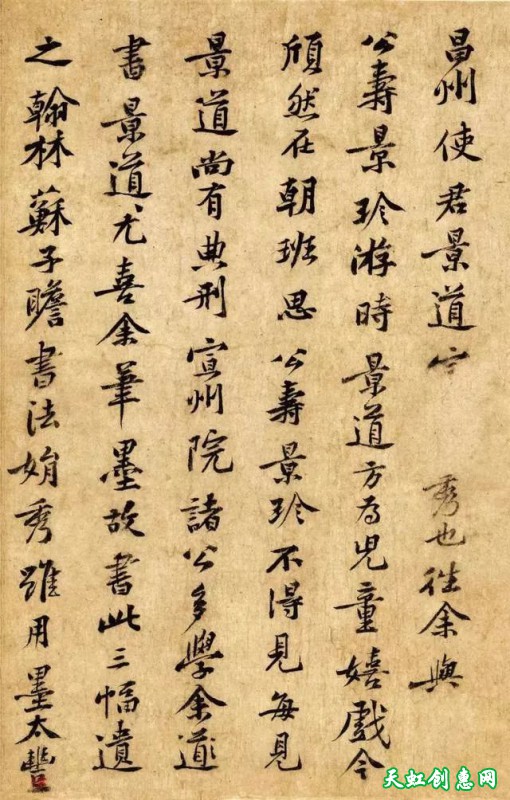 昌州使君景道 秀也往余與
公壽景珍游時景道方为兒童嬉戲今
頎然在朝班思公壽景珍不得見每見
景道尚有典刑宣州院諸公多學余
書景道尤喜余筆墨故書此三幅遺
之翰林蘇子瞻書法娟秀雖用墨太豐
天虹创惠网